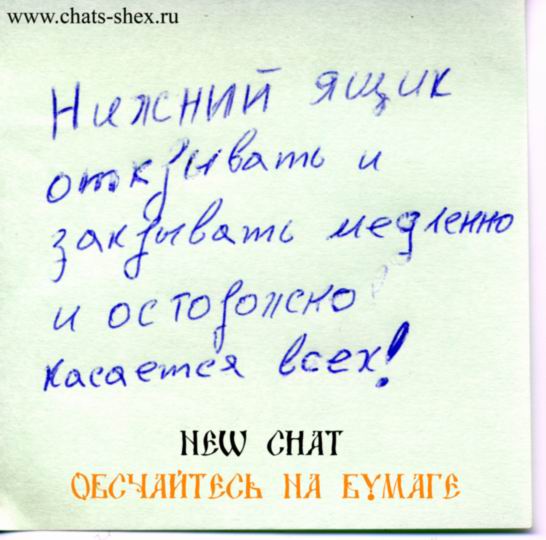 www.chats-shex.ru
Нижний ящик
открывать и
закрывать медленно
и осторожно
касается всех!
NEW CHAT
ОБСЧАЙТЕСЬ НА БУМАГЕ